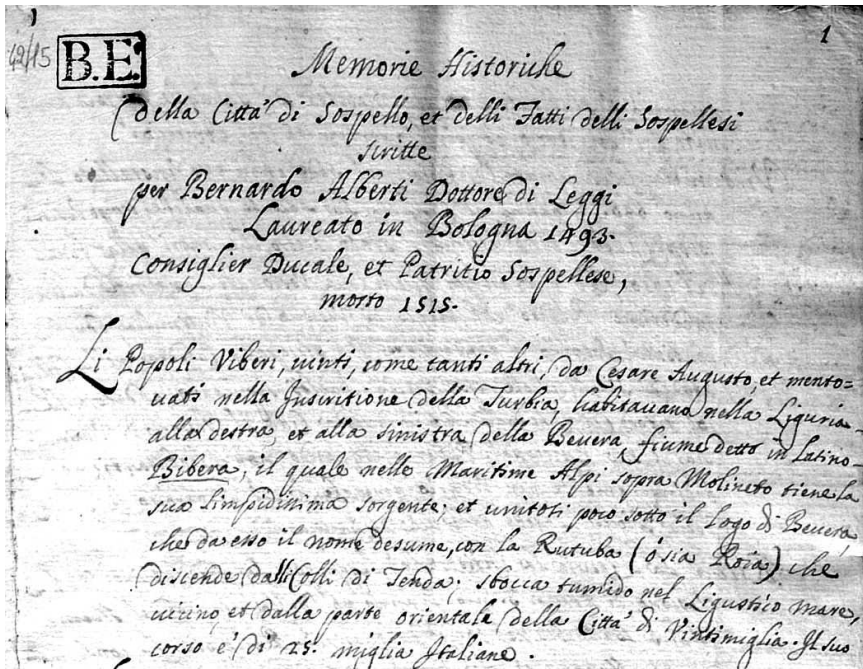 1
42/15 B.E.
Memorie Historiche
della Città di Sospello, et delli Fatti delli Sospellesi
scritte
per Bernardo Alberti Dottore di Leggi
Laureato in Bologna 1493.
Consiglier Ducale, et Patritio Sospellese,
morto 1515.
Li Popoli Viberi, vinti, come tanti altri, da Cesare Augusto, et mento=
uati nella Inscritione della Turbia, habitauano nella Liguria
alla destra, et alla sinistra della Beuera, fiume detto in latino
Bibera; il quale nelle Maritime Alpi sopra Molineto tiene la
sua limpidissima sorgente; et unitosi poco sotto il logo di Beuera,
che da esso il nome desume, con la Rutuba (ò sia Roia) che
discende dalli Colli di Tenda; sbocca tumido nel Ligustico mare,
uicino, et dalla parte orientale della Città di Vintimiglia. Il suo
corso è di 25. miglia Italiane.